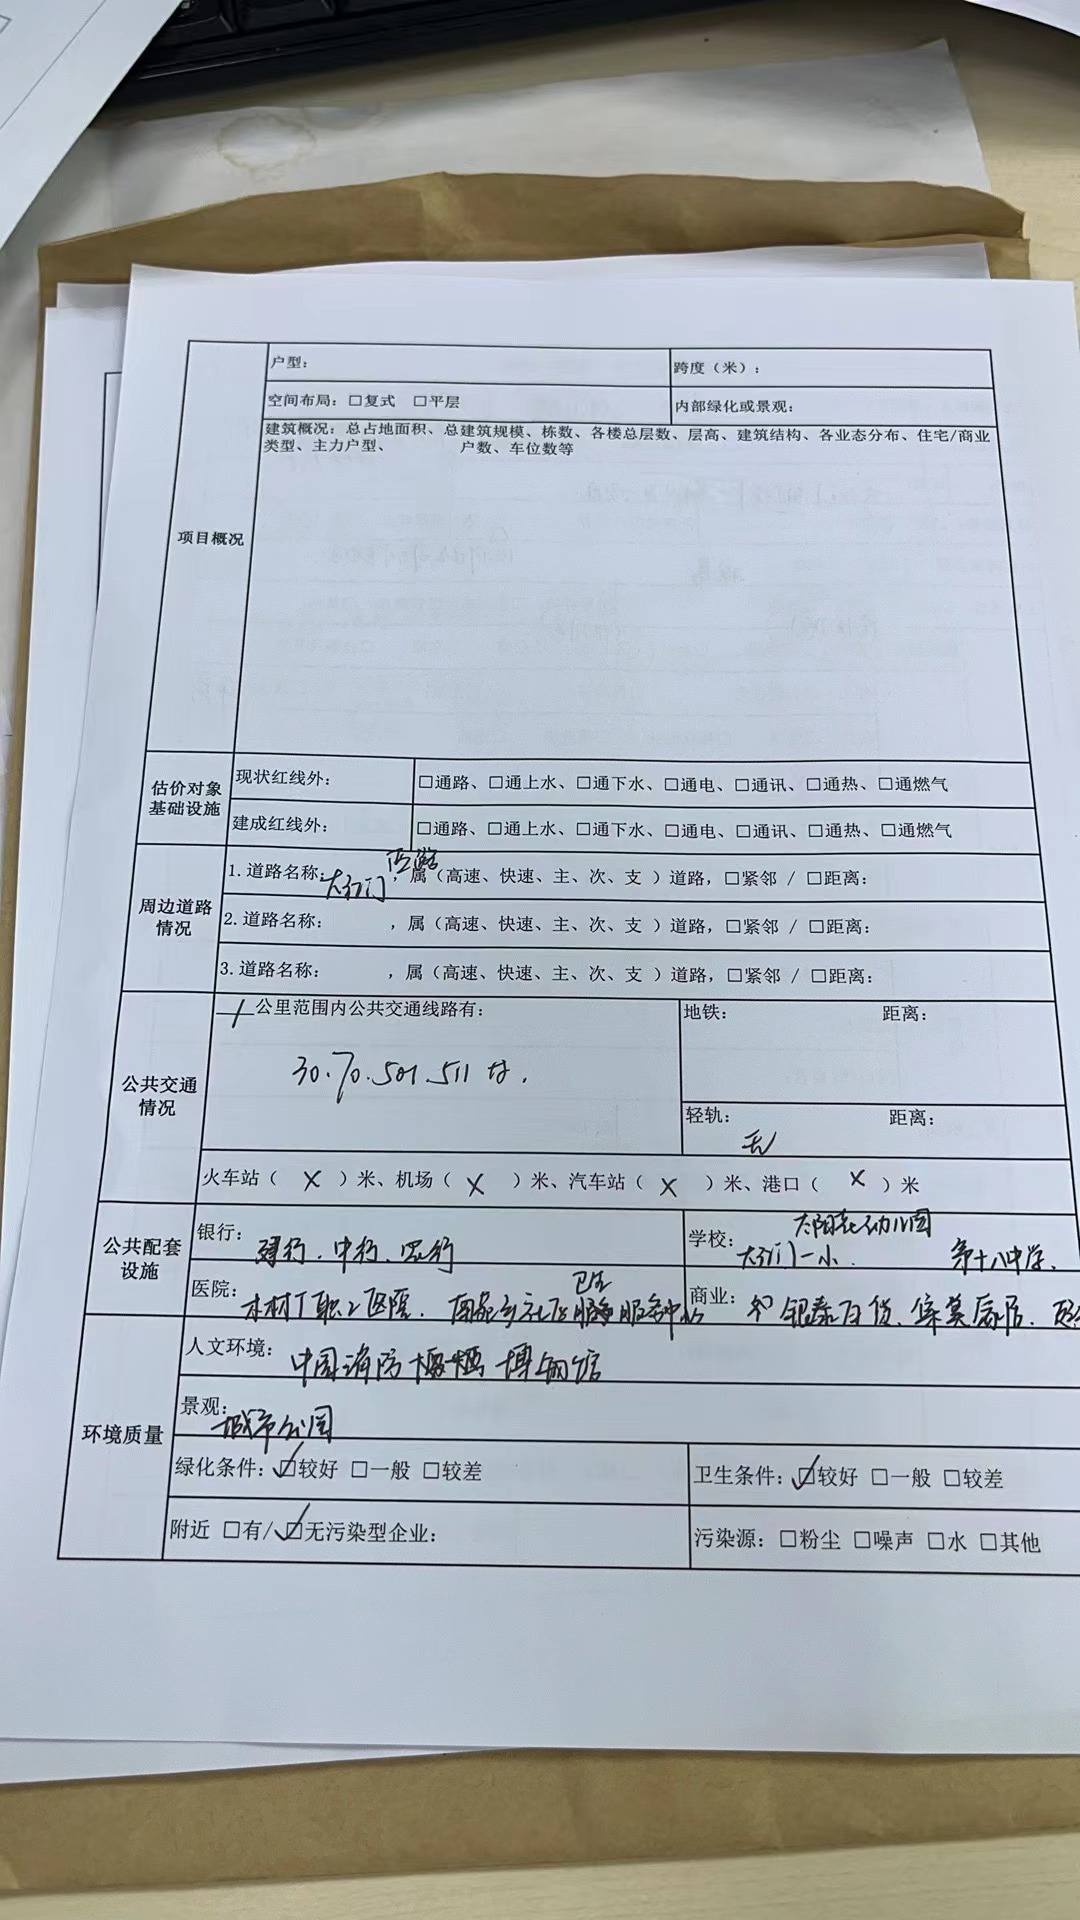 户型：
跨度（米）：
空间布局：□复式 □平层
内部绿化或景观：
建筑概况：总占地面积、总建筑规模、栋数、各楼总层数、层高、建筑结构、各业态分布、住宅/商业
类型、主力户型、 户数、车位数等
项目概况
估价对象
基础设施
现状红线外：
□通路、□通上水、□通下水、□通电、□通讯、□通热、□通燃气
建成红线外：
□通路、□通上水、□通下水、□通电、□通讯、□通热、□通燃气
周边道路
情况
1.道路名称：大红门西路，属（高速、快速、主、次、支 ）道路，□紧邻 / □距离：
2.道路名称： ，属（高速、快速、主、次、支 ）道路，□紧邻 / □距离：
3.道路名称： ，属（高速、快速、主、次、支 ）道路，□紧邻 / □距离：
公共交通
情况
1公里范围内公共交通线路有：
30.70.501.511 等.
地铁： 距离：
轻轨： 距离：
无
火车站（ X ）米、机场（ X ）米、汽车站（ X ）米、港口（ X ）米
公共配套
设施
银行：建行.中行.农行
学校：太阳花幼儿园
大红门一小. 第十八中学.
医院：木材厂职工医院. 南苑乡社区卫生服务中心
商业：银泰百货.集美家居.
环境质量
人文环境：中国消防博物馆
景观：城市公园
绿化条件：☑较好 □一般 □较差
卫生条件：☑较好 □一般 □较差
附近 □有/☑无污染型企业：
污染源：□粉尘 □噪声 □水 □其他